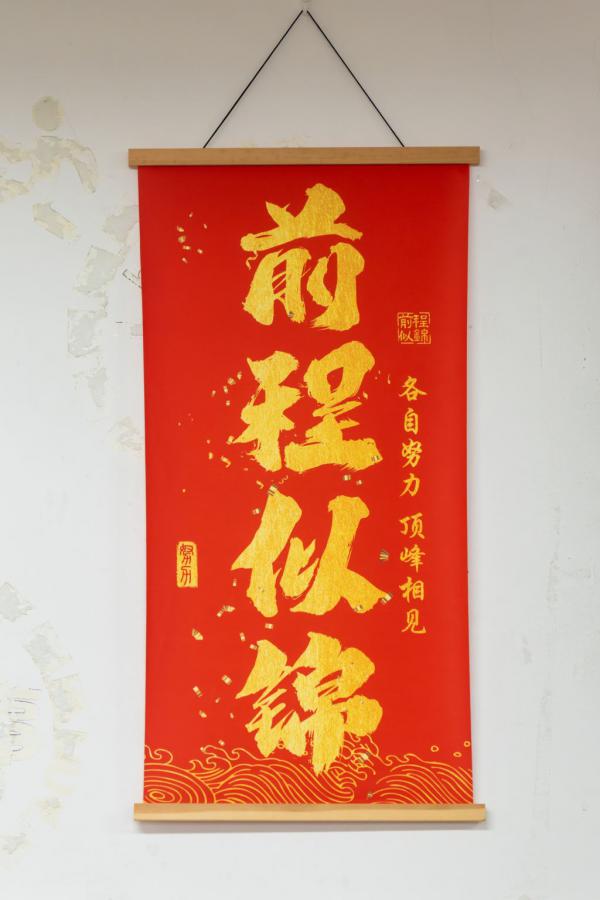 前程似锦
前程似錦
各自努力 顶峰相见
努力